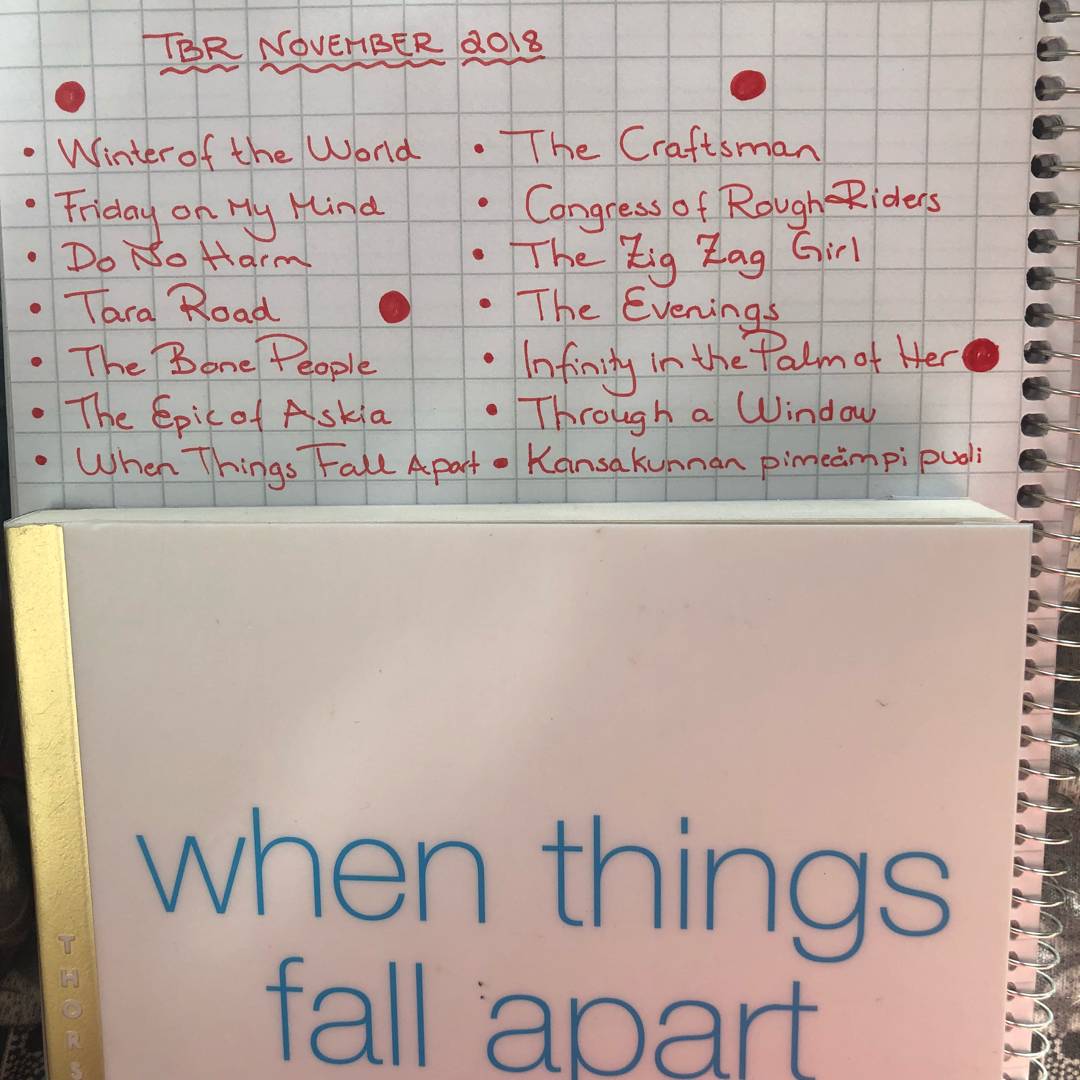 TBR NOVEMBER 2018
• Winter of the World
• Friday on My Mind
• Do No Harm
• Tara Road
• The Bone People
• The Epic of Askia
• When Things Fall Apart
• The Craftsman
• Congress of Rough Riders
• The Zig Zag Girl
• The Evenings
• Infinity in the Palm of Her
• Through a Window
• Kansakunnan pimeämpi puoli
when things
fall apart
THORS